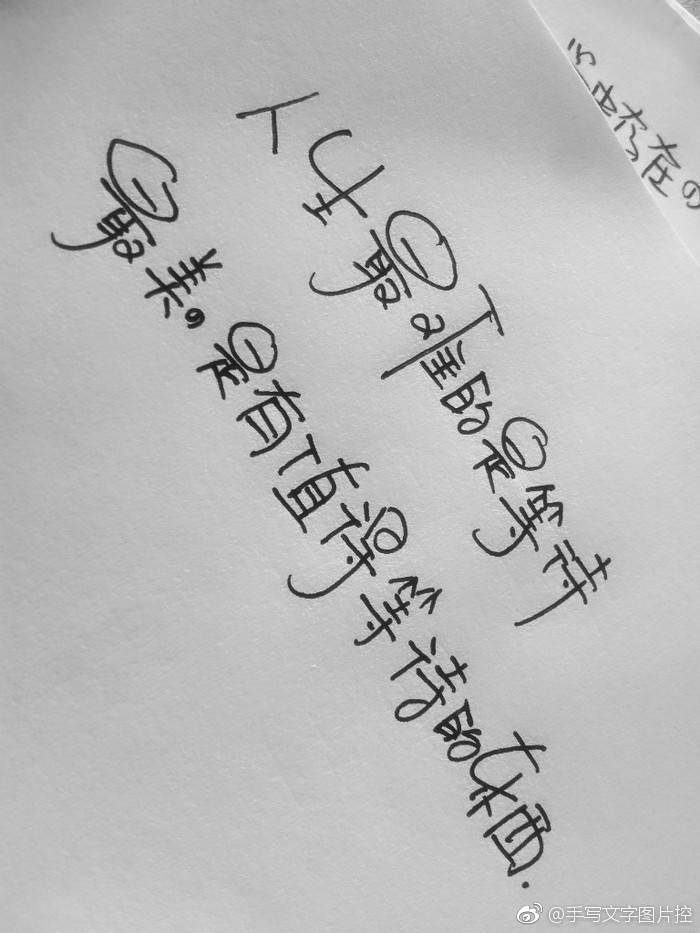 存在の
人生最难的是等待
最美の是有值得等待的东西.
@手写文字图片控